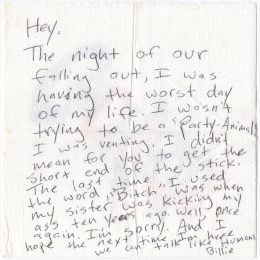 Hey.
The night of our
falling out, I was
having the worst day
of my life. I wasn't
trying to be a "Party-Animal"
I was venting. I didn't
mean for you to get the
short end of the stick.
The last time I used
the word "Bitch" was when
my sister was kicking my
ass ten years ago. Well, once
again. I'm sorry. And I
hope the next time I'm here
we can talk like Humans.
Billie